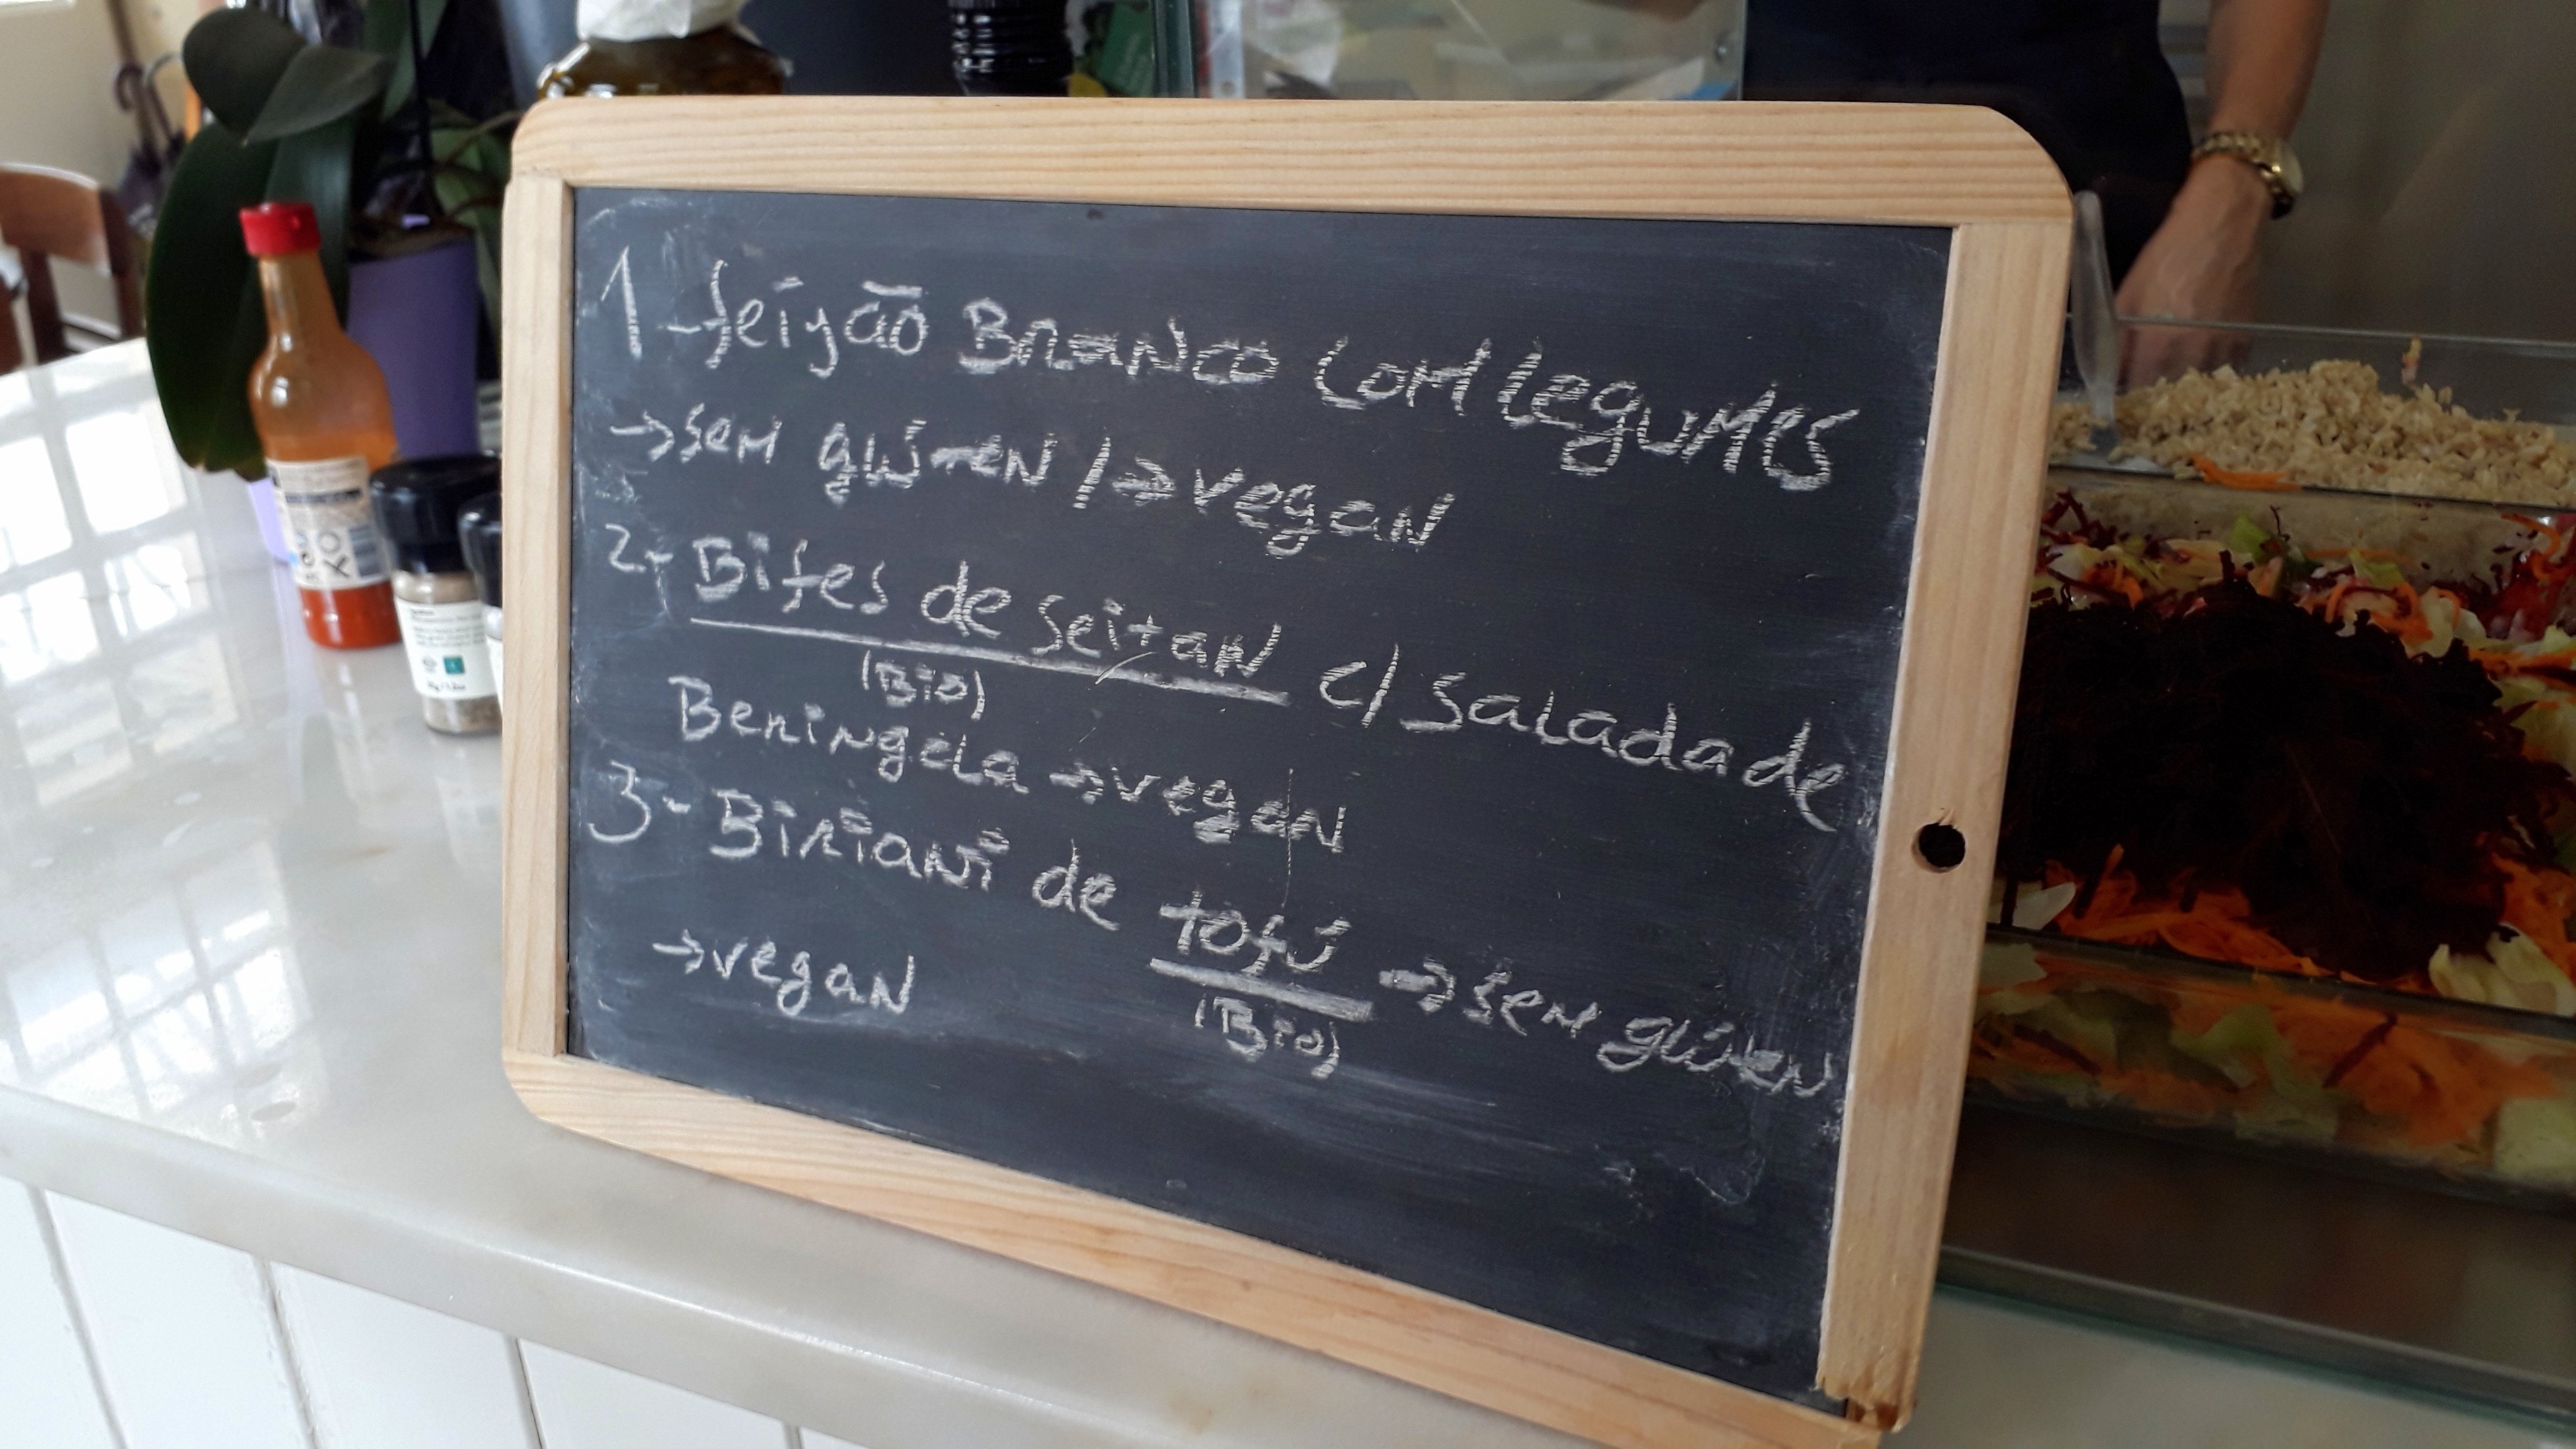 1-feijão Branco com legumes
→sem glúten /→vegan
2- Bifes de seitan c/ Salada de
(Bio)
Beringela →vegan
3- Biriani de tofú →sem glúten
(Bio)
→vegan